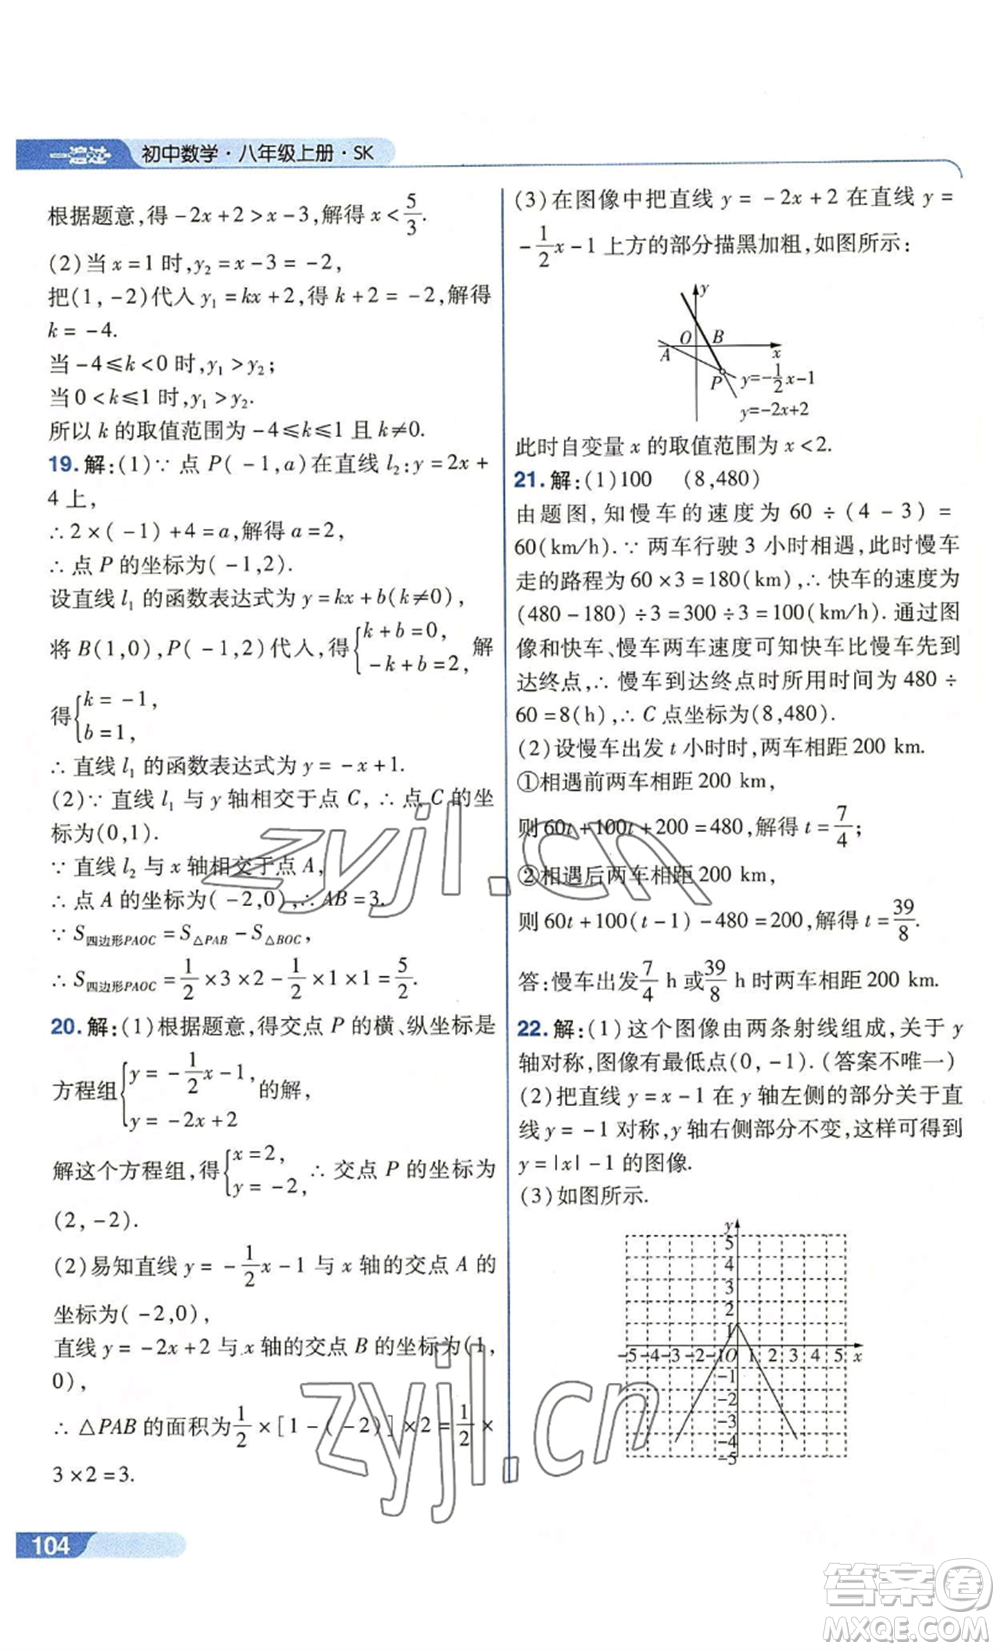 一遍过 初中数学·八年级上册·SK
根据题意,得-2x+2>x-3,解得x<5/3.
(2)当x=1时,y₂=x-3=-2,
把(1,-2)代入y₁=kx+2,得k+2=-2,解得
k=-4.
当-4≤k<0时,y₁>y₂;
当0<k≤1时,y₁>y₂.
所以k的取值范围为-4≤k≤1且k≠0.
19.解:(1)∵点P(-1,a)在直线l₂:y=2x+
4上,
∴2×(-1)+4=a,解得a=2,
∴点P的坐标为(-1,2).
设直线l₁的函数表达式为y=kx+b(k≠0),
将B(1,0),P(-1,2)代入,得{k+b=0, -k+b=2, 解
得{k=-1, b=1,
∴直线l₁的函数表达式为y=-x+1.
(2)∵直线l₁与y轴相交于点C,∴点C的坐
标为(0,1).
∵直线l₂与x轴相交于点A,
∴点A的坐标为(-2,0),∴AB=3.
∵S四边形PAOC=S△PAB-S△BOC,
∴S四边形PAOC=1/2×3×2-1/2×1×1=5/2.
20.解:(1)根据题意,得交点P的横、纵坐标是
方程组{y=-1/2x-1, y=-2x+2 的解,
解这个方程组,得{x=2, y=-2, ∴交点P的坐标为
(2,-2).
(2)易知直线y=-1/2x-1与x轴的交点A的
坐标为(-2,0),
直线y=-2x+2与x轴的交点B的坐标为(1,
0),
∴△PAB的面积为1/2×[1-(-2)]×2=1/2×
3×2=3.
(3)在图像中把直线y=-2x+2在直线y=
-1/2x-1上方的部分描黑加粗,如图所示:
y
O B
A x
P y=-1/2x-1
y=-2x+2
此时自变量x的取值范围为x<2.
21.解:(1)100 (8,480)
由题图,知慢车的速度为60÷(4-3)=
60(km/h).∵两车行驶3小时相遇,此时慢车
走的路程为60×3=180(km),∴快车的速度为
(480-180)÷3=300÷3=100(km/h).通过图
像和快车、慢车两车速度可知快车比慢车先
到达终点,∴慢车到达终点时所用时间为480÷
60=8(h),∴C点坐标为(8,480).
(2)设慢车出发t小时时,两车相距200 km.
①相遇前两车相距200 km,
则60t+100t+200=480,解得t=7/4;
②相遇后两车相距200 km,
则60t+100(t-1)-480=200,解得t=39/8.
答:慢车出发7/4 h或39/8 h时两车相距200 km.
22.解:(1)这个图像由两条射线组成,关于y
轴对称,图像有最低点(0,-1).(答案不唯一)
(2)把直线y=x-1在y轴左侧的部分关于直
线y=-1对称,y轴右侧部分不变,这样可得到
y=|x|-1的图像.
(3)如图所示.
y
5
4
3
2
1
-5 -4 -3 -2 -1 O 1 2 3 4 5 x
-1
-2
-3
-4
-5
104
zyjl.cn
zyjl.cn
答案卷
MXQE.COM